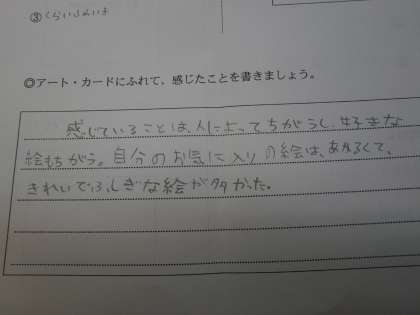 ③くらいふんいき
◎アート・カードにふれて、感じたことを書きましょう。
感じていることは、人によってちがうし、好きな
絵もちがう。自分のお気に入りの絵は、あかるくて、
きれいでふしぎな絵が多かった。